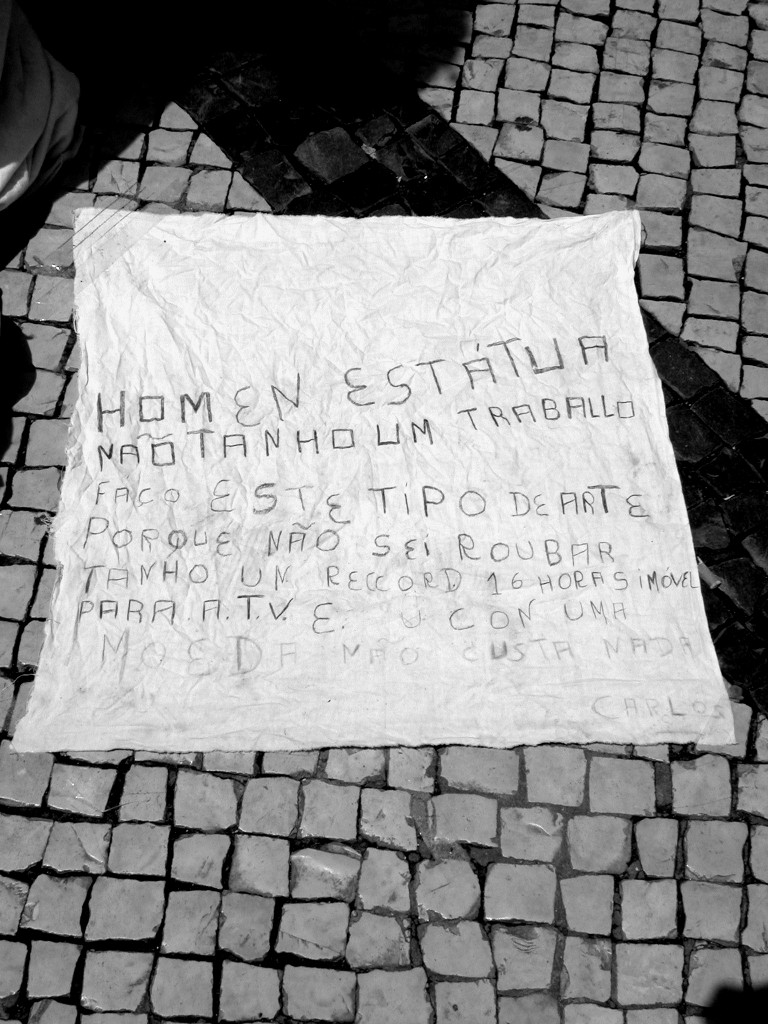 HOMEN ESTÁTUA
NAÕ TANHO UM TRABALLO
FACO ESTE TIPO DE ARTE
PORQUE NÃO SEI ROUBAR
TANHO UN RECCORD 16 HORAS IMÓVEL
PARA.A.T.V. E. U CON UMA
MOEDA NÃO CUSTA NADA
CARLOS